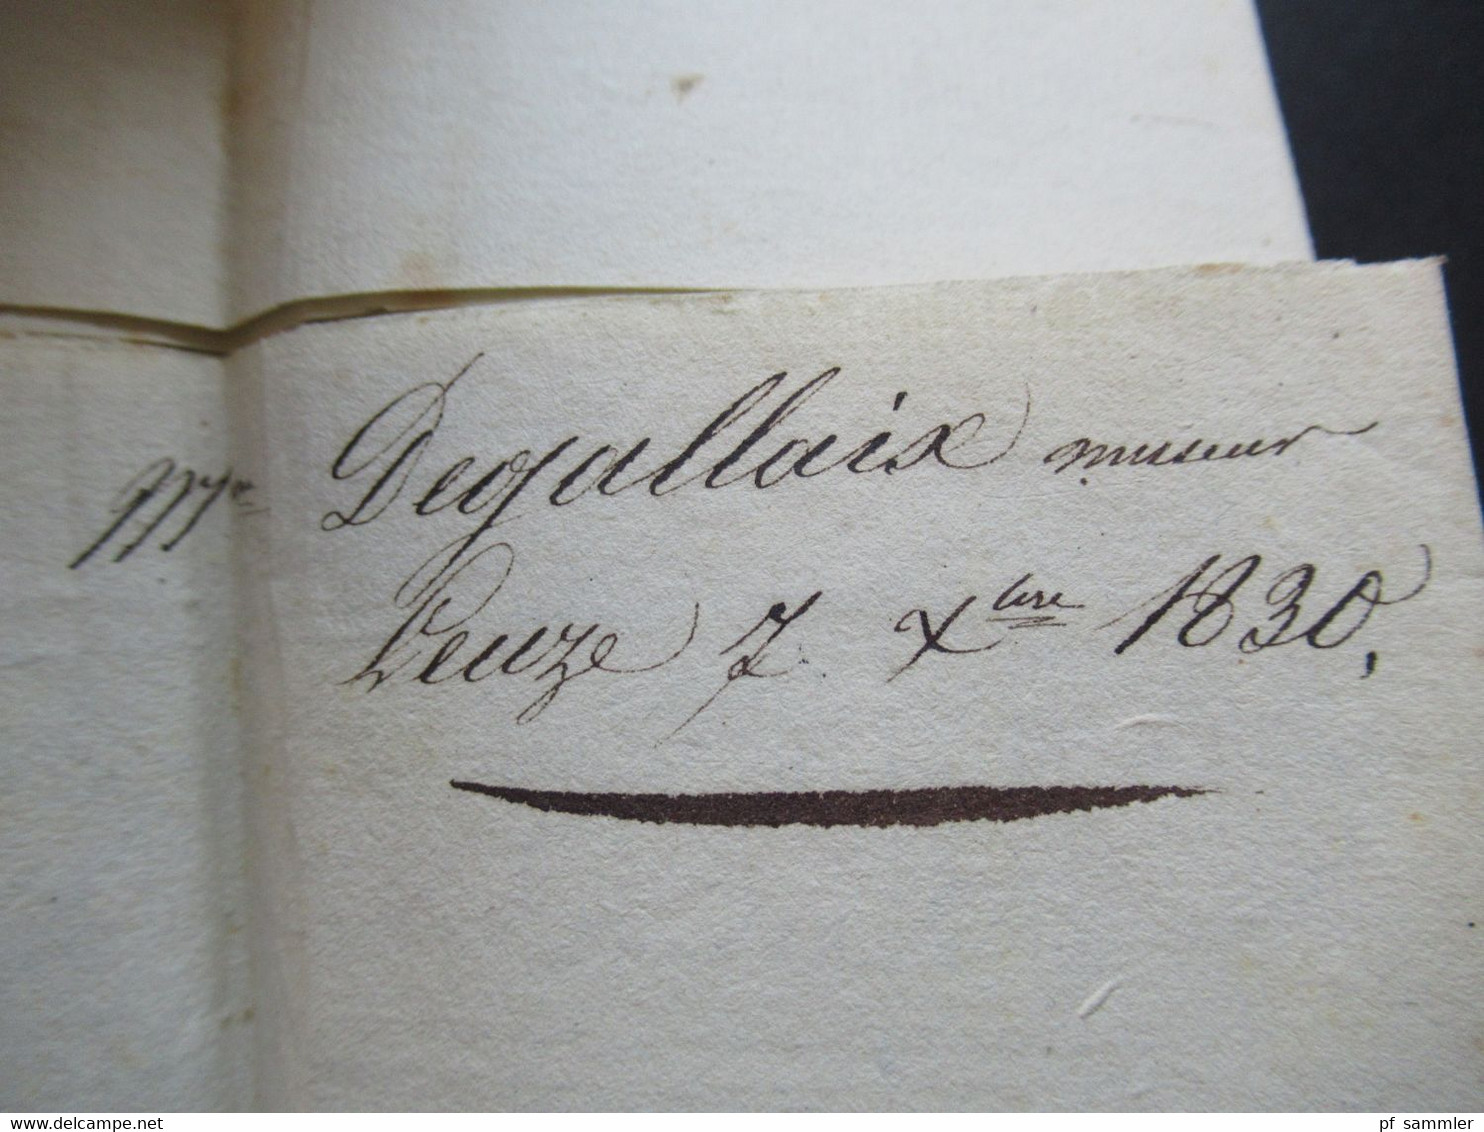 Mr Degallaix mineur
Leuze 7. Xbre 1830,
www.delcampe.net
pf_sammler